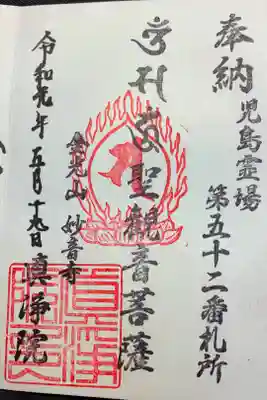 奉納
児島霊場
第五十二番札所
聖觀音菩薩
金光山 妙音寺
令和元年 五月十九日 眞浄院